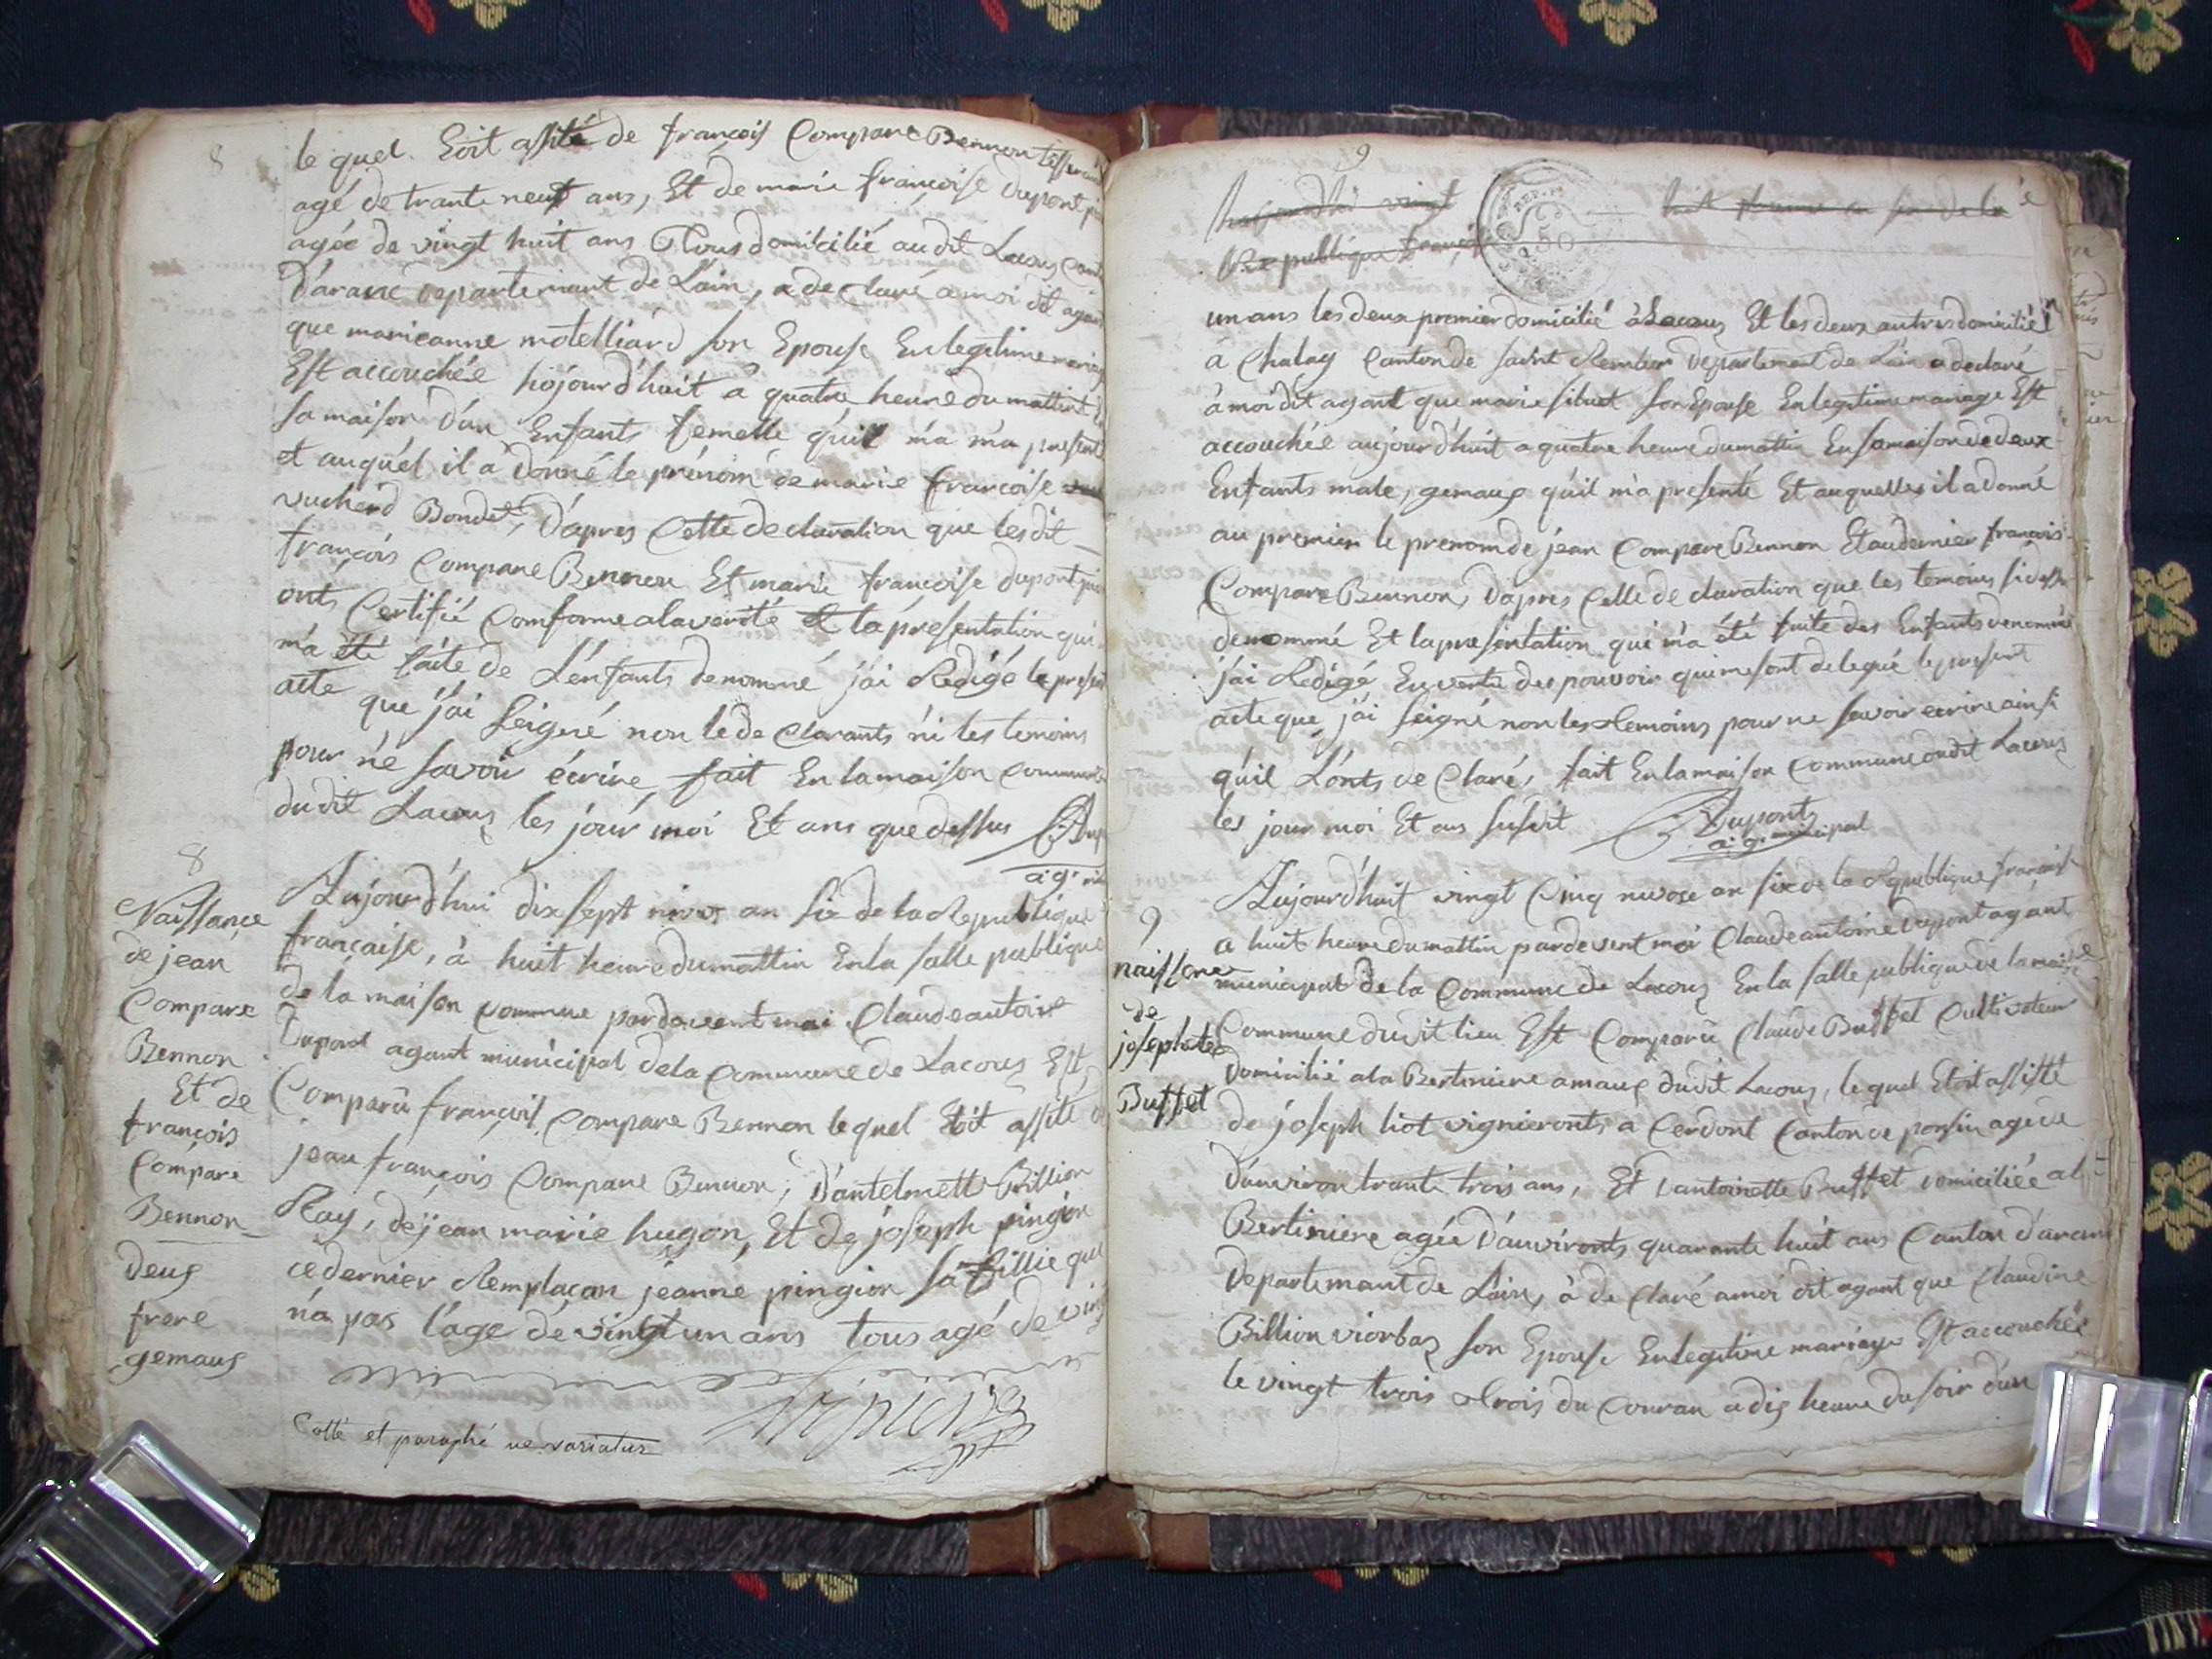 8
le quel Etoit assité de françois Compare Bennon
agé de trante neuf ans, Et de marie françoise dupont
agée de vingt huit ans Tous domicilié au dit Lacoux
D'arane Departemant de Lain, a declaré a moi dit agan
que marieanne motelliard son Epouse En legitime mariag
Est accouchée hojourd'huit a quatre heure du mattint
sa maison D'un Enfants femelle qu'il m'a m'a present
et auquel il a donné le prénom de marie françoise
vucherd Bondet, D'apres Cette declaration que les dit
françois Compare Bennon Et marie françoise dupont qui
onts Certifié Comforme a la verité Et la présentation qui
m'a été faite de L'enfants denommé j'ai Redigé le presen
acte que j'ai Seigné non le de Clarants ni les temoins
pour né savoir écrire, fait En la maison commune
du dit Lacoux les jour moi Et ans que dessus
a.g.
8
Naissance
de jean
Compare
Bennon
Et de
françois
Compare
Bennon
deus
frere
gemaus
Aujourd'hui dix sept nivos an six de la Republique
française, à huit heure du mattin En la salle publique
de la maison commue pardevent moi Claude antoine
Dupont agant municipal de la Commune de Lacoux Est
Comparû françois Compare Bennon le quel Etoit assité d
jean françois Compare Bennon, D'antelmette Billion
Ray, de jean marie hugon, Et de joseph pingon
ce dernier Remplaçan jeanne pingion sa fillie qui
n'a pas l'age de vingt un ans tous agé de vin
Cotté et paraphé ne variatur
9
vingt
Republique
50
un ans les deux premier domicilié à Lacoux Et les deux autres domicilié
à Chaley Canton de saint Rember Departement de Lain a declaré
à moi dit agant que marie silvet son Epouse En legitime mariage Est
accouchée aujourd'huit a quatre heure du mattin En sa maison de deux
Enfants male, gemaux qu'il m'a presenté Et auquelles il a donné
au premier le prenom de jean Compare Bennon Et au dernier françois
Compare Bennon, D'apres Cette de claration que les temoins si dess
denommé Et la presentation qui m'a été faite des Enfants denommé
j'ai Redigé En vertu des pouvoir qui me sont delegué le present
acte que j'ai seigné non les Temoins pour ne savoir ecrire ainsi
qu'il L'onts de Claré, fait En la maison Commune dudit Lacoux
les jour moi Et ans susdit Dupont
a.g. municipal
9
naissance
de
josephte
Buffet
Aujourd'huit vingt Cinq nivose an six de la Republique français
a huit heure du mattin pardevent moi Claude antoine Dupont agant
municipal de la Commune de Lacoux En la salle publique de la maison
Commune du dit lieu Est Comparû Claude Buffet Cultivateur
Domicilié a la Bertiniere amaux du dit Lacoux, le quel Etoit assisté
de joseph liot vignieronts a Cerdont Canton de ponsin agé de
D'anviron trante trois ans, Et D'antoinette Buffet domiciliée a la
Bertiniere agée D'anvironts quarante huit ans Canton d'aran
Departemant de Lain, à de Claré a moi dit agant que Claudine
Billion viorbaz son Epouse En legitime mariage Est accouchée
le vingt trois Trois du Couran a dix heure du soir d'un